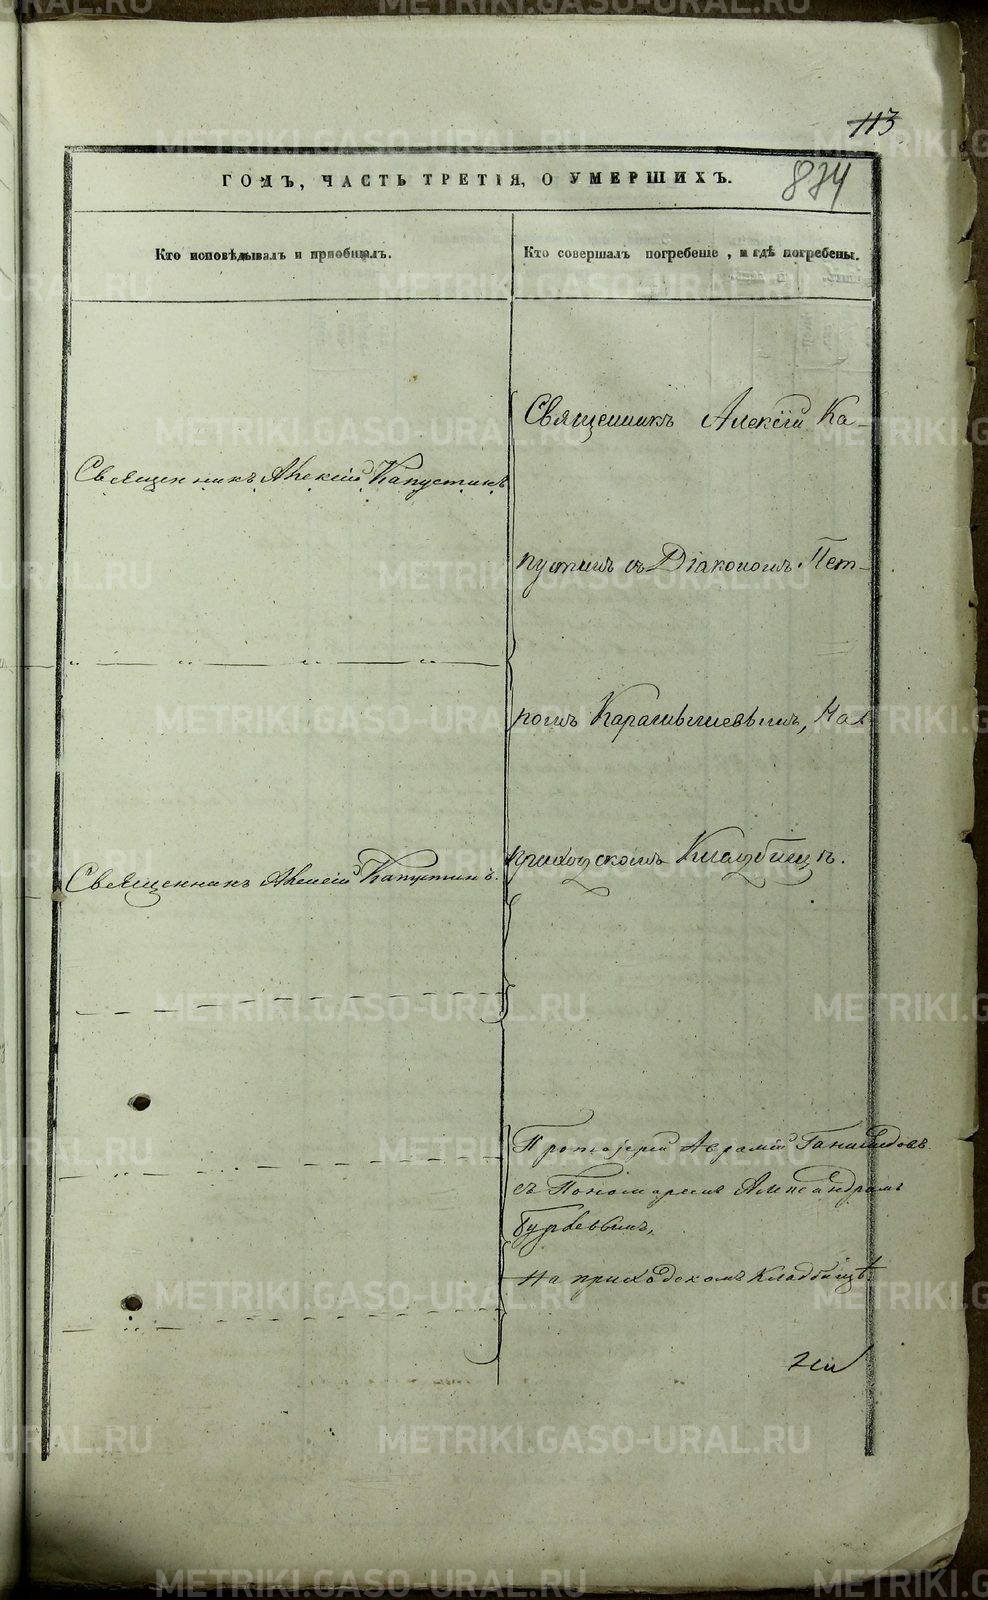 113
834
ГОДЪ, ЧАСТЬ ТРЕТІЯ, О УМЕРШИХЪ.
Кто исповѣдывалъ и пріобщалъ.
Кто совершалъ погребеніе, и гдѣ погребены.
Священникъ Алексій Капустинъ
Священникъ Алексій Капустинъ.
Священникъ Алексій Ка-
пустинъ съ Діакономъ Пет-
ромъ Карамышевымъ, На
приходскомъ Кладбищѣ.
Протоіерей Аврамій
съ Пономаремъ Александромъ
На приходскомъ Кладбищѣ
METRIKI.GASO-URAL.RU